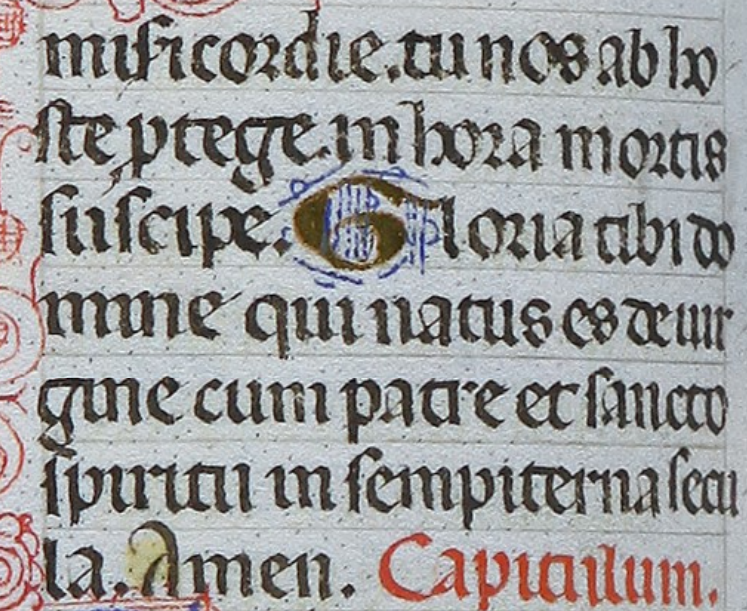 misericordie. tu nos ab ho
ste ptege. in hora mortis
suscipe. Gloria tibi do
mine qui natus es de uir
gine cum patre et sancto
spiritu in sempiterna secu
la. Amen. Capitulum.